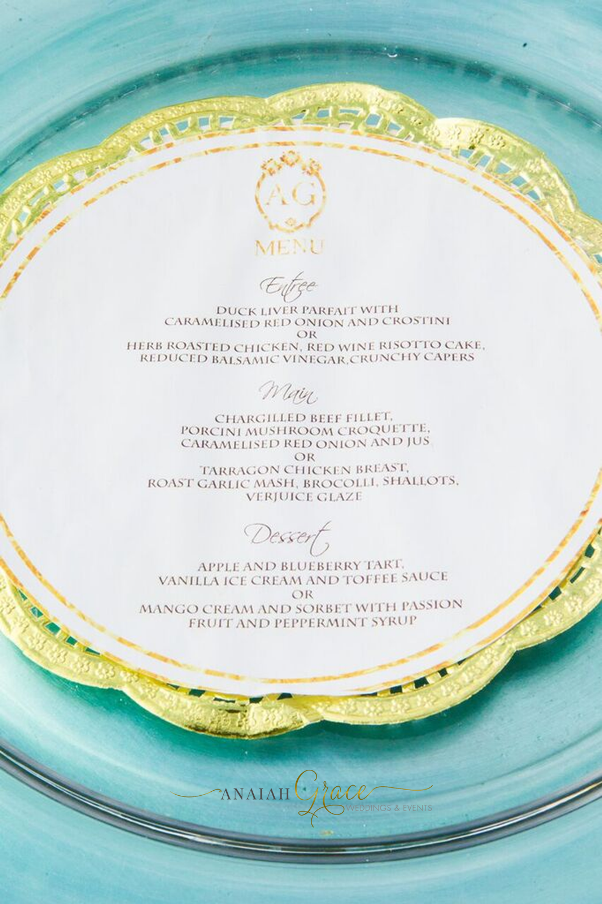 AG
MENU
Entree
DUCK LIVER PARFAIT WITH
CARAMELISED RED ONION AND CROSTINI
OR
HERB ROASTED CHICKEN, RED WINE RISOTTO CAKE,
REDUCED BALSAMIC VINEGAR,CRUNCHY CAPERS
Main
CHARGILLED BEEF FILLET,
PORCINI MUSHROOM CROQUETTE,
CARAMELISED RED ONION AND JUS
OR
TARRAGON CHICKEN BREAST,
ROAST GARLIC MASH, BROCOLLI, SHALLOTS,
VERJUICE GLAZE
Dessert
APPLE AND BLUEBERRY TART,
VANILLA ICE CREAM AND TOFFEE SAUCE
OR
MANGO CREAM AND SORBET WITH PASSION
FRUIT AND PEPPERMINT SYRUP
ANAIAH Grace
WEDDINGS & EVENTS